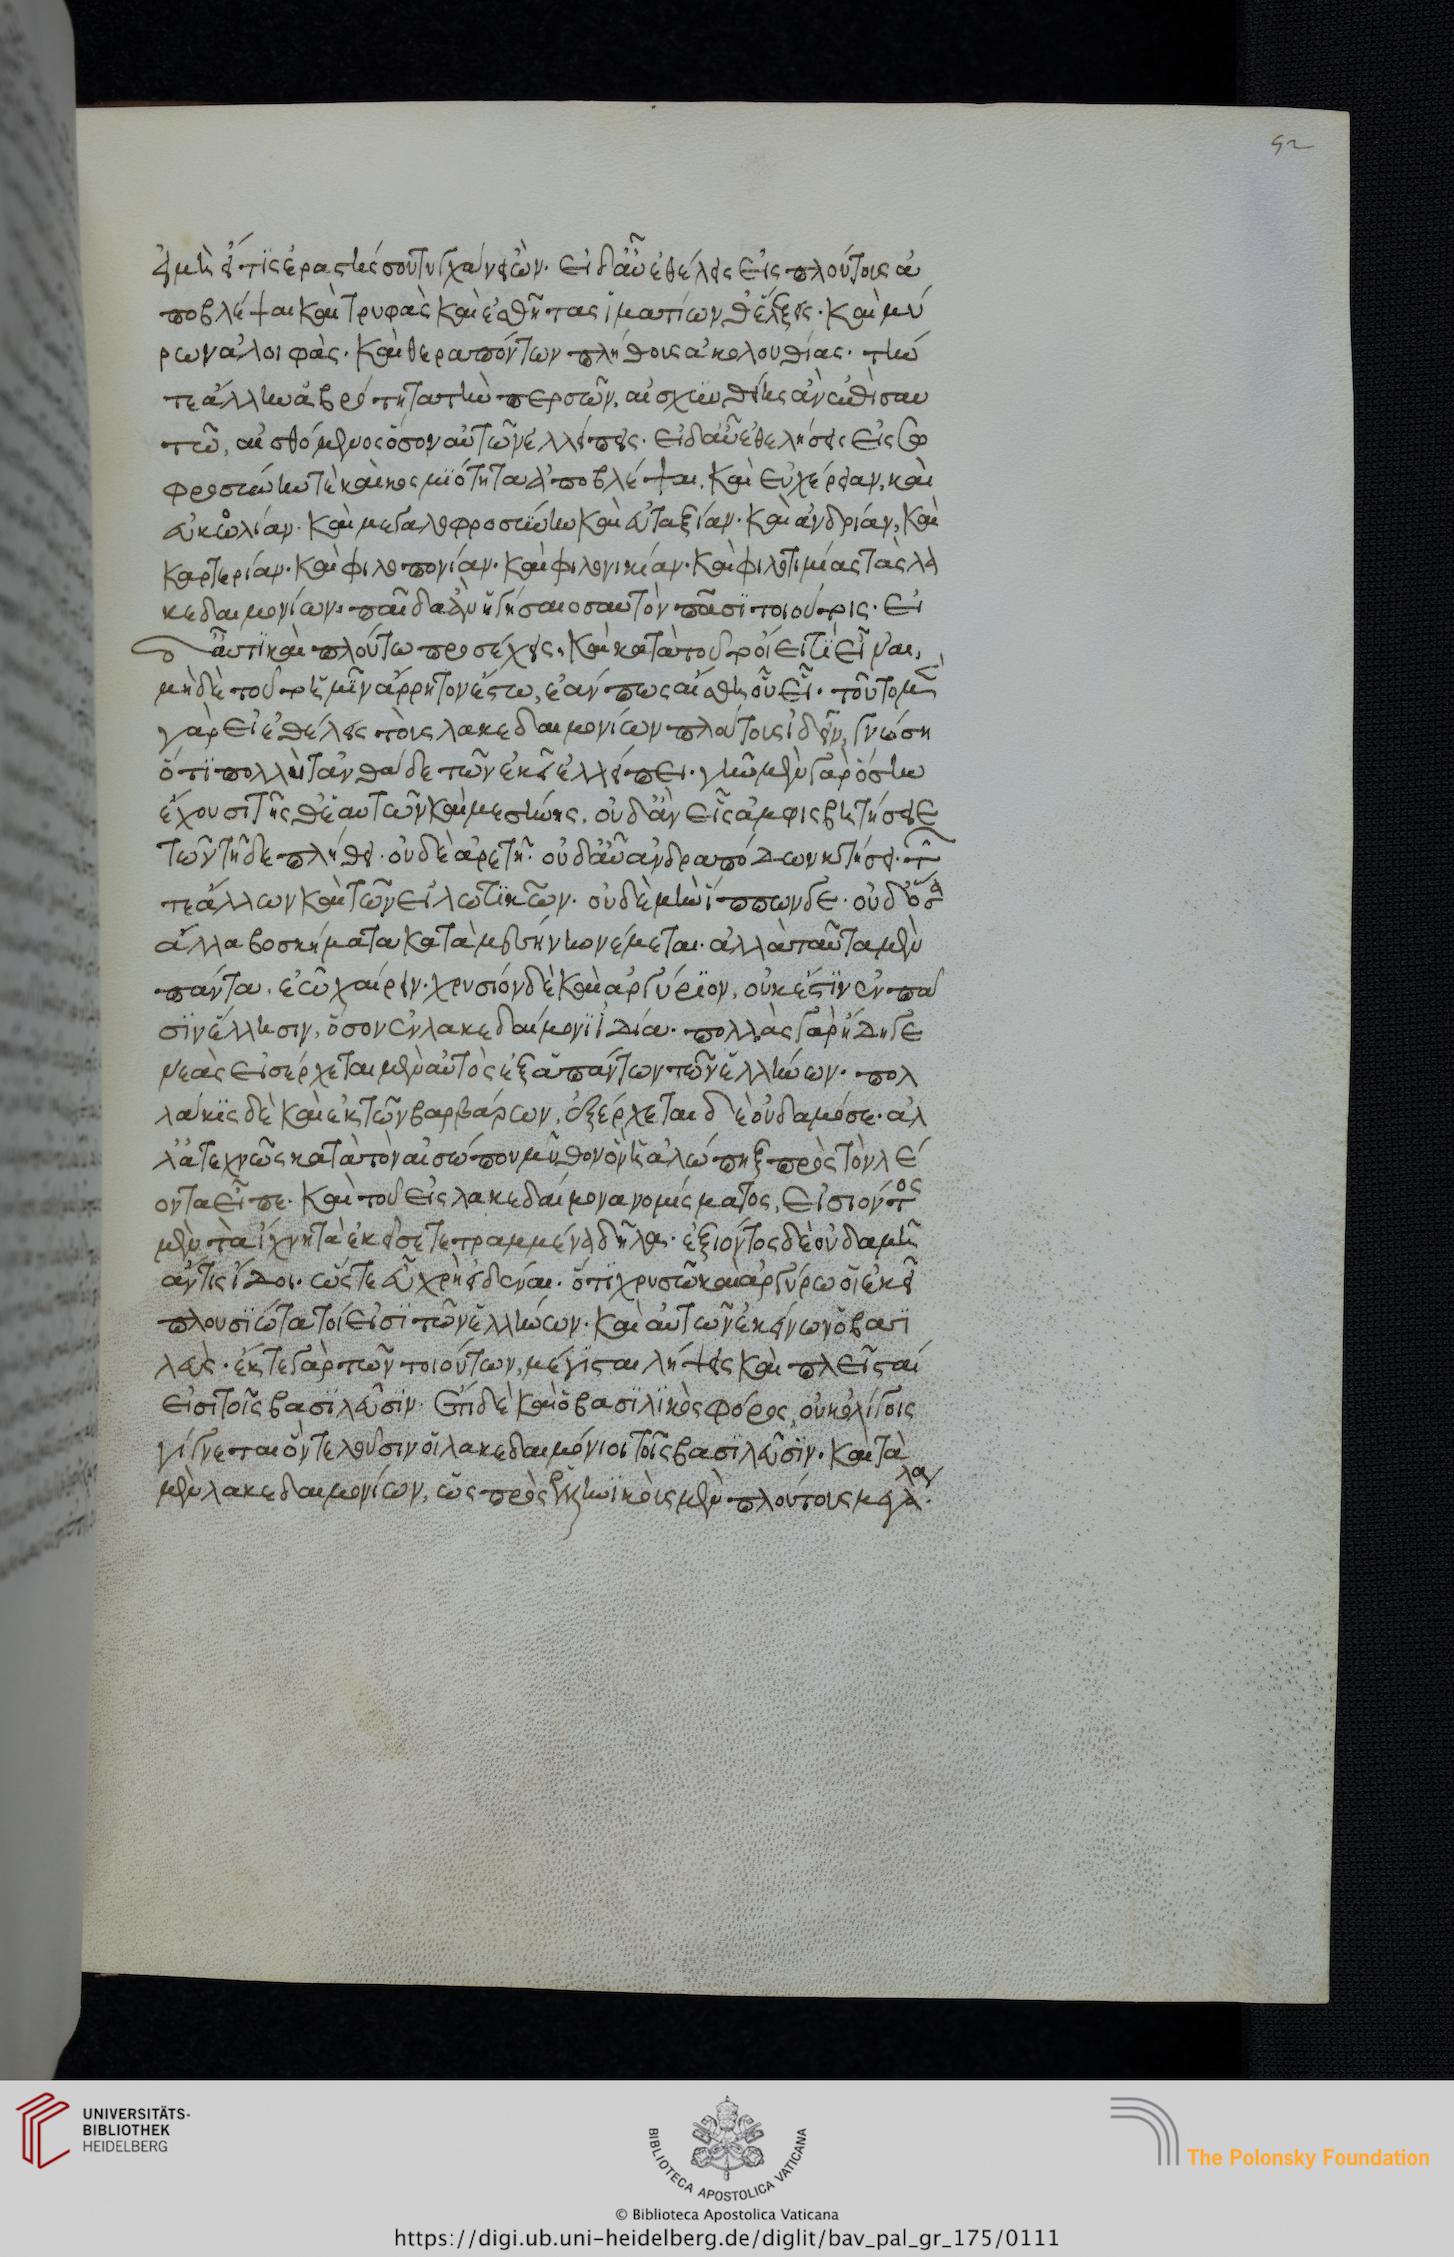 εἰ μὴ εἴ τις ἐραστής σου τυγχάνει ὤν. εἰ δ' αὖ ἐθέλεις εἰς πλούτους ἀ
ποβλέψαι καὶ τρυφὰς καὶ ἐσθῆτας ἱματίων θ' ἕλξεις. καὶ μύ
ρων ἀλοιφὰς. καὶ θεραπόντων πλήθους ἀκολουθίας. τήν
τε ἄλλην ἁβρότητα τὴν περσῶν, αἰσχυνθείης ἂν ἐπὶ σαυ
τῶ, αἰσθόμενος ὅσον αὐτῶν ἐλλείπεις. εἰ δ' αὖ ἐθελήσεις εἰς σω
φροσύνην τὲ καὶ κοσμιότητα ἀποβλέψαι, καὶ εὐχέρειαν, καὶ
εὐκολίαν. καὶ μεγαλοφροσύνην καὶ εὐταξίαν. καὶ ἀνδρίαν, καὶ
καρτερίαν. καὶ φιλοπονίαν. καὶ φιλονικίαν. καὶ φιλοτιμίας τὰς λα
κεδαιμονίων. παῖδ' ἂν ἡγήσαιο σαυτὸν πᾶσι τοιούτοις. εἰ
δ' αὖ τι καὶ πλούτω προσέχεις. καὶ κατὰ τοῦτο οἴει τὶ εἶναι,
μηδὲ τοῦθ' ἡμῖν ἄρρητον ἔστω, ἐάν πως αἴσθη οὗ εἶ. τοῦτο μὲν
γὰρ εἰ ἐθέλεις τοὺς λακεδαιμονίων πλούτους ἰδεῖν, γνώση
ὅτι πολλὴ τἀνθάδε τῶν ἐκεῖ ἐλλείπει. γῆν μὲν γὰρ ὅσην
ἔχουσι τῆς θ' ἑαυτῶν καὶ μεσσήνης, οὐδ' ἂν εἷς ἀμφισβητήσειε
τῶν τῆδε πλήθει. οὐδὲ ἀρετῆ. οὐδ' αὖ ἀνδραπόδων κτήσει. τῶν
τε ἄλλων καὶ τῶν εἱλωτικῶν. οὐδὲ μὴν ἵππων γε. οὐδ' ὅσα
ἄλλα βοσκήματα κατὰ μεσσήνην νέμεται. ἀλλὰ ταῦτα μὲν
πάντα, ἐῶ χαίρειν. χρυσίον δὲ καὶ ἀργύριον, οὐκ ἔστιν ἐν πᾶ
σιν ἕλλησιν, ὅσον ἐν λακεδαίμονι ἰδία. πολλὰς γὰρ ἤδη γε
νεὰς εἰσέρχεται μὲν αὐτὸς ἐξ ἁπάντων τῶν ἑλλήνων. πολ
λάκις δὲ καὶ ἐκ τῶν βαρβάρων, ἐξέρχεται δὲ οὐδαμόσε. ἀλ
λ' ἀτεχνῶς κατὰ τὸν αἰσώπου μῦθον ὃν ἡ ἀλώπηξ πρὸς τὸν λέ
οντα εἶπε. καὶ τοῦ εἰς λακεδαίμονα νομίσματος, εἰσιόντος
μὲν τὰ ἴχνη τὰ ἐκεῖσε τετραμμένα δῆλα. ἐξιόντος δὲ οὐδαμῆ
ἄν τις ἴδοι. ὥστε εὖ χρὴ εἰδέναι. ὅτι χρυσῶ καὶ ἀργύρω οἱ ἐκεῖ
πλουσιώτατοί εἰσι τῶν ἑλλήνων. καὶ αὐτῶν ἐκείνων ὁ βασι
λεὺς. ἔκ τε γὰρ τῶν τοιούτων, μέγισται λήψεις καὶ πλεῖσταί
εἰσι τοῖς βασιλεῦσιν. ἔτι δὲ καὶ ὁ βασιλικὸς φόρος, οὐκ ὀλίγος
γίγνεται ὃν τελοῦσιν οἱ λακεδαιμόνιοι τοῖς βασιλεῦσιν. καὶ τὰ
μὲν λακεδαιμονίων, ὡς πρὸς ἑλληνικοὺς μὲν πλούτους μεγάλα.